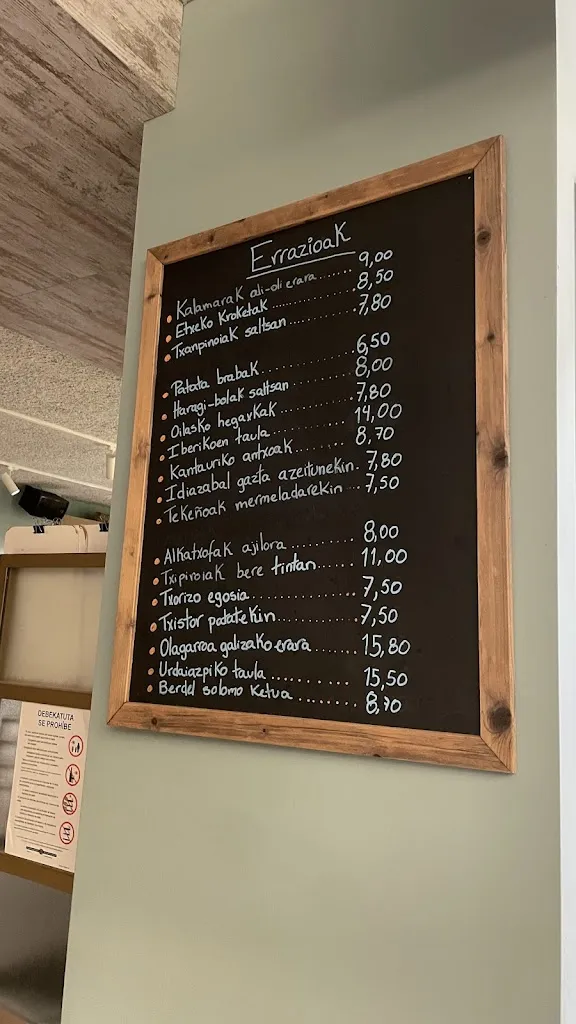 Errazioak
Kalamarak ali-oli erara........ 9,00
Etxeko kroketak................ 8,50
Txanpinoiak saltsan............ 7,80
Patata brabak.................. 6,50
Haragi-bolak saltsan........... 8,00
Oilasko hegaxkak............... 7,80
Iberikoen taula................ 14,00
Kantauriko antxoak............. 8,70
Idiazabal gazta azeitunekin. 7,80
Tekeñoak mermeladarekin... 7,50
Alkatxofak ajilora............. 8,00
Txipiroiak bere tintan......... 11,00
Txorizo egosia................. 7,50
Txistor patatekin.............. 7,50
Olagarroa galizako erara....... 15,80
Urdaiazpiko taula.............. 15,50
Berdel solomo ketua......... 8,70
DEBEKATUTA
SE PROHÍBE